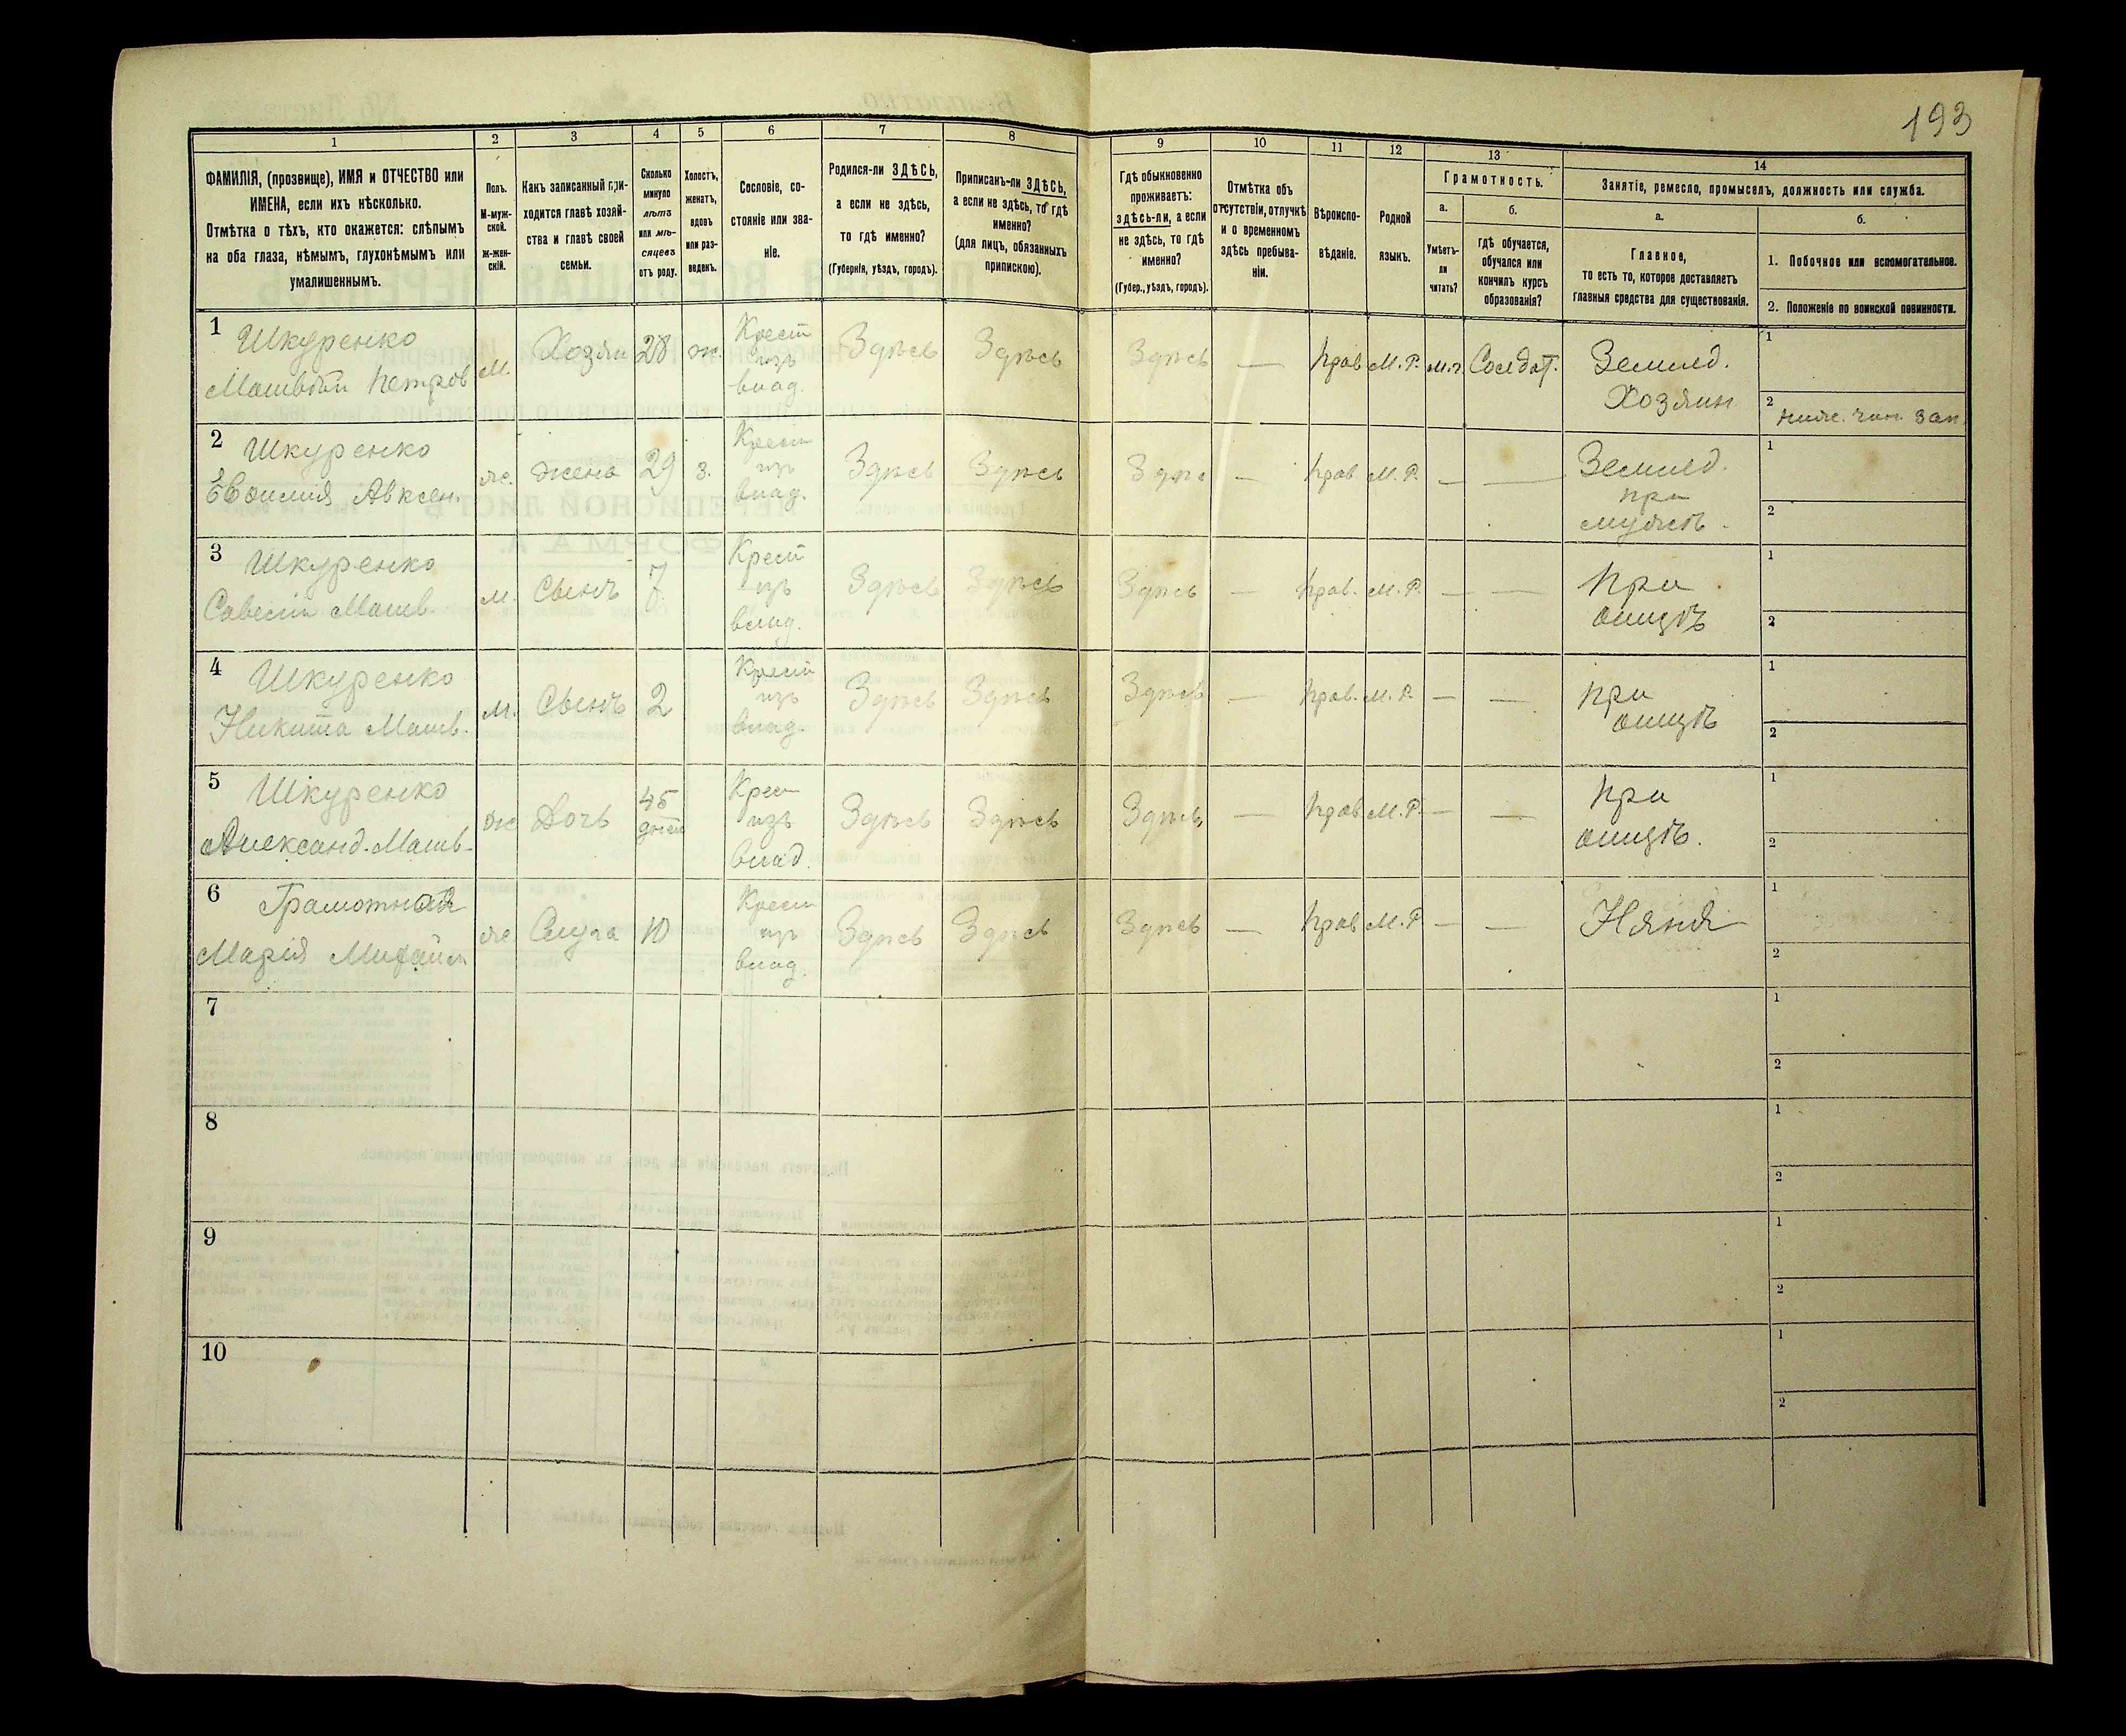 193
1
2
3
4
5
6
7
8
9
10
11
12
13
14
ФАМИЛІЯ, (прозвище), ИМЯ и ОТЧЕСТВО или
ИМЕНА, если ихъ нѣсколько.
Отмѣтка о тѣхъ, кто окажется: слѣпымъ
на оба глаза, нѣмымъ, глухонѣмымъ или
умалишеннымъ.
Полъ.
М-муж-
ской.
ж-жен-
скій.
Какъ записанный при-
ходится главѣ хозяй-
ства и главѣ своей
семьи.
Сколько
минуло
лѣтъ
или мѣ-
сяцевъ
отъ роду.
Холостъ,
женатъ,
вдовъ
или раз-
веденъ.
Сословіе, со-
стояніе или зва-
ніе.
Родился-ли ЗДѢСЬ,
а если не здѣсь,
то гдѣ именно?
(Губернія, уѣздъ, городъ).
Приписанъ-ли ЗДѢСЬ,
а если не здѣсь, то гдѣ
именно?
(для лицъ, обязанныхъ
припискою).
Гдѣ обыкновенно
проживаетъ:
здѣсь-ли, а если
не здѣсь, то гдѣ
именно?
(Губер., уѣздъ, городъ).
Отмѣтка объ
отсутствіи, отлучкѣ
и о временномъ
здѣсь пребыва-
ніи.
Вѣроиспо-
вѣданіе.
Родной
языкъ.
Грамотность.
а.
б.
Умѣетъ-
ли
читать?
гдѣ обучается,
обучался или
кончилъ курсъ
образованія?
Занятіе, ремесло, промыселъ, должность или служба.
а.
б.
Главное,
то есть то, которое доставляетъ
главныя средства для существованія.
1. Побочное или вспомогательное.
2. Положеніе по воинской повинности.
1 Шкуренко
Матвѣй Петров
м.
Хозяи
28
ж.
Крест
изъ
влад.
Здѣсь
Здѣсь
Здѣсь
—
Прав
М. Р.
Солдат.
Землед.
Хозяин
1
2
ниж. чин. зап.
2 Шкуренко
Евфимія Авксен.
же.
жена
29
з.
Крест
изъ
влад.
Здѣсь
Здѣсь
Здѣс
—
Прав.
М. Р.
—
—
Землед.
при
мужѣ.
1
2
3 Шкуренко
Савелій Матв.
м.
Сынъ
7
Крест
изъ
влад.
Здѣсь
Здѣсь
Здѣсь
—
Прав.
М. Р.
—
—
При
отцѣ
1
2
4 Шкуренко
Никита Матв.
м.
Сынъ
2
Крест
изъ
влад.
Здѣсь
Здѣсь
Здѣсь
—
Прав.
М. Р.
—
—
При
отцѣ
1
2
5 Шкуренко
Александ. Матв.
ж
Дочь
45
дней
Крест
изъ
влад.
Здѣсь
Здѣсь
Здѣсь
—
Прав
М. Р.
—
—
При
отцѣ.
1
2
6
Марія Михайл
же
Слуга
10
Крест
изъ
влад.
Здѣсь
Здѣсь
Здѣсь
—
Прав
М. Р
—
—
Няня
1
2
7
1
2
8
1
2
9
1
2
10
1
2